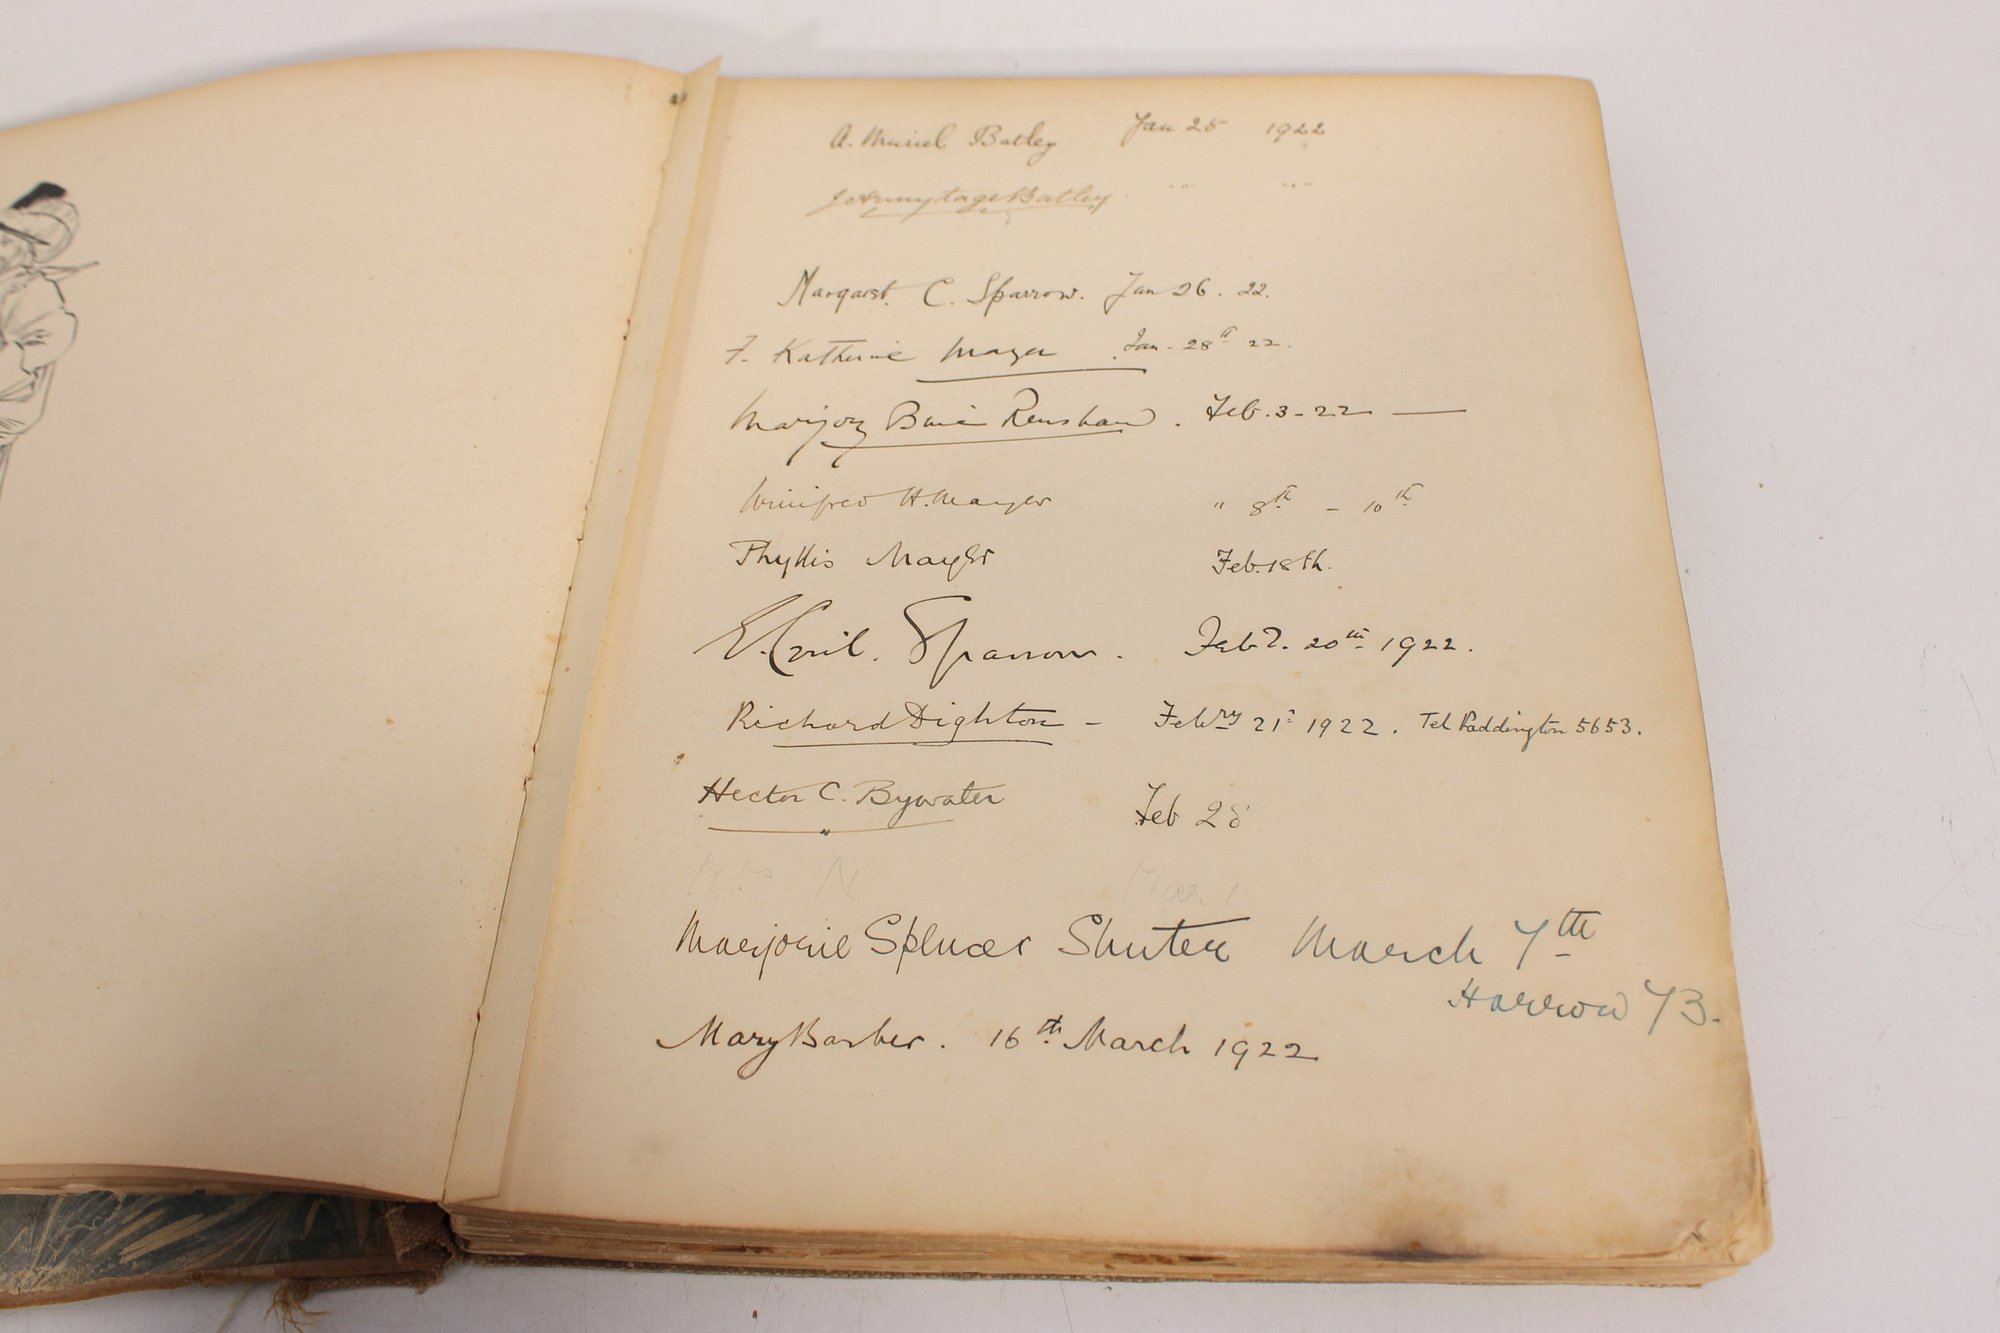 A. Muriel Batley Jan 25 1922
J Armytage Batley. " "
Margaret C. Sparrow. Jan 26. 22.
F. Katherine Mayer Jan - 28th 22.
Marjory Renshaw. Feb. 3 - 22 —
Winifred H. Mayer " 8th - 10th
Phyllis Mayer Feb. 18th.
E. Cyril. Sparrow. 20th 1922.
Richard Dighton - Febry 21st 1922. Tel Paddington 5653.
Hector C. Bywater Feb 28
Mar 1
Marjorie Spencer Shuter March 7th
Harrow 73.
Mary Barber. 16th March 1922